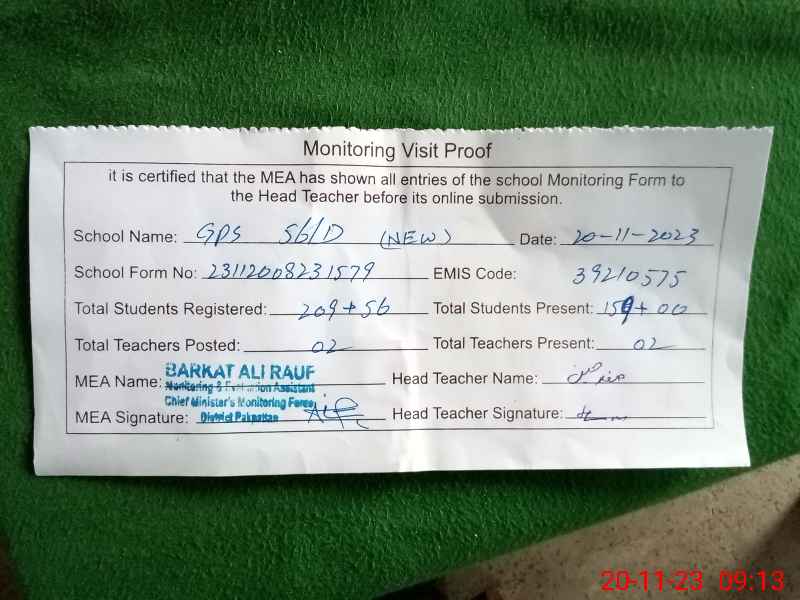 Monitoring Visit Proof
it is certified that the MEA has shown all entries of the school Monitoring Form to
the Head Teacher before its online submission.
School Name: GPS 56/D (NEW) Date: 20-11-2023
School Form No: 23112008231579 EMIS Code: 39210575
Total Students Registered: 209+56 Total Students Present: 159+00
Total Teachers Posted: 02 Total Teachers Present: 02
MEA Name: BARKAT ALI RAUF Head Teacher Name:
Monitoring & Evaluation Assistant
Chief Minister's Monitoring Force
MEA Signature: District Pakpattan Head Teacher Signature:
20-11-23 09:13